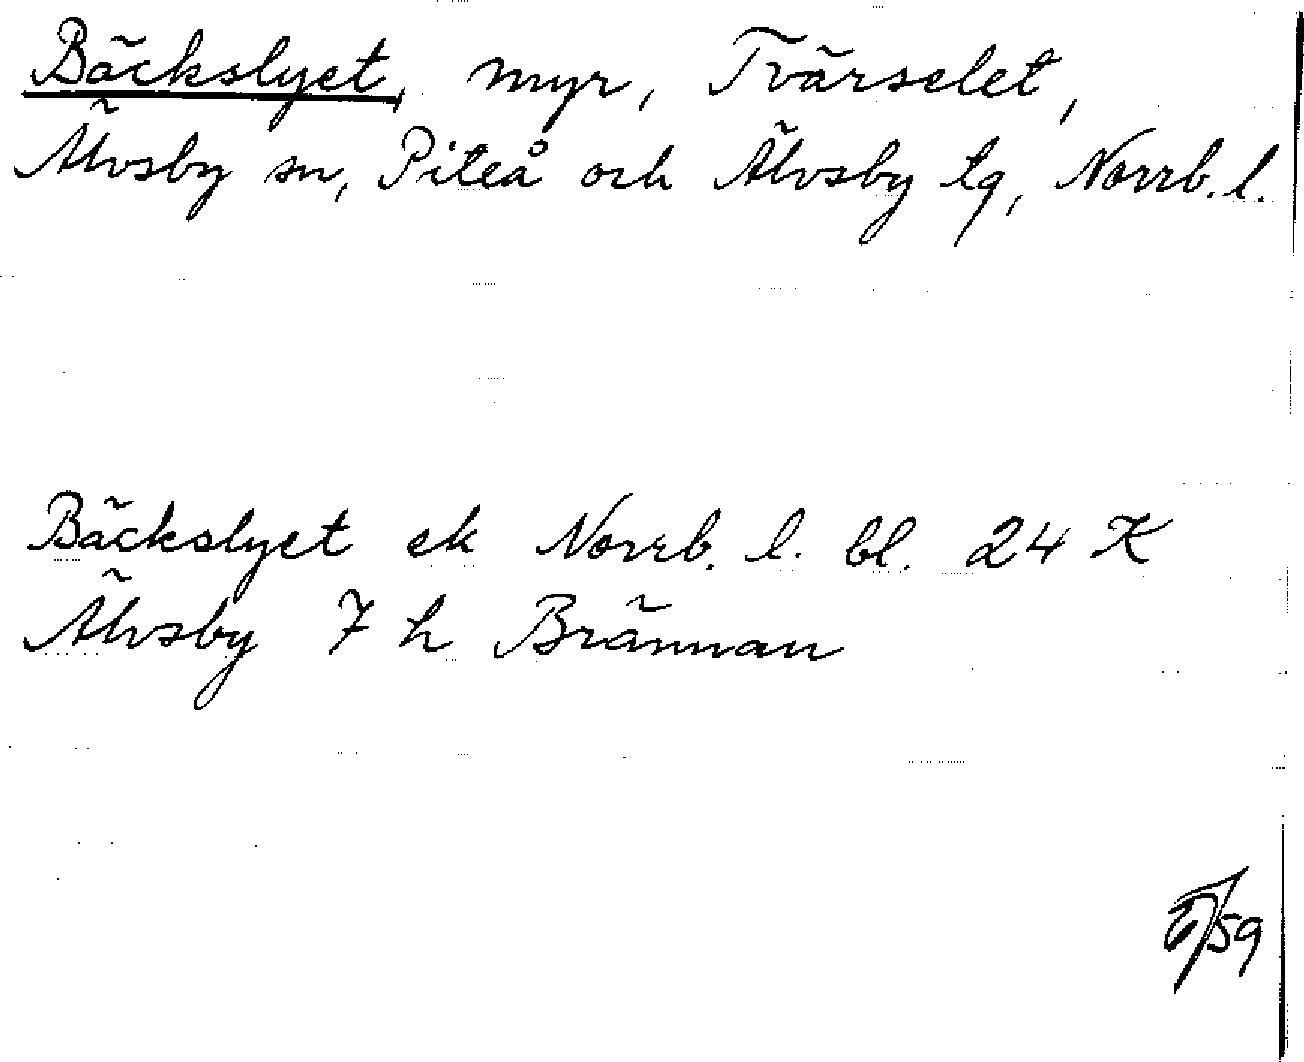 Bäckslyet, myr, Tvärselet,
Älvsby sn, Piteå och Älvsby tg, Norrb. l.
Bäckslyet ek Norrb. l. bl. 24 K
Älvsby 7 h Brännan
/59